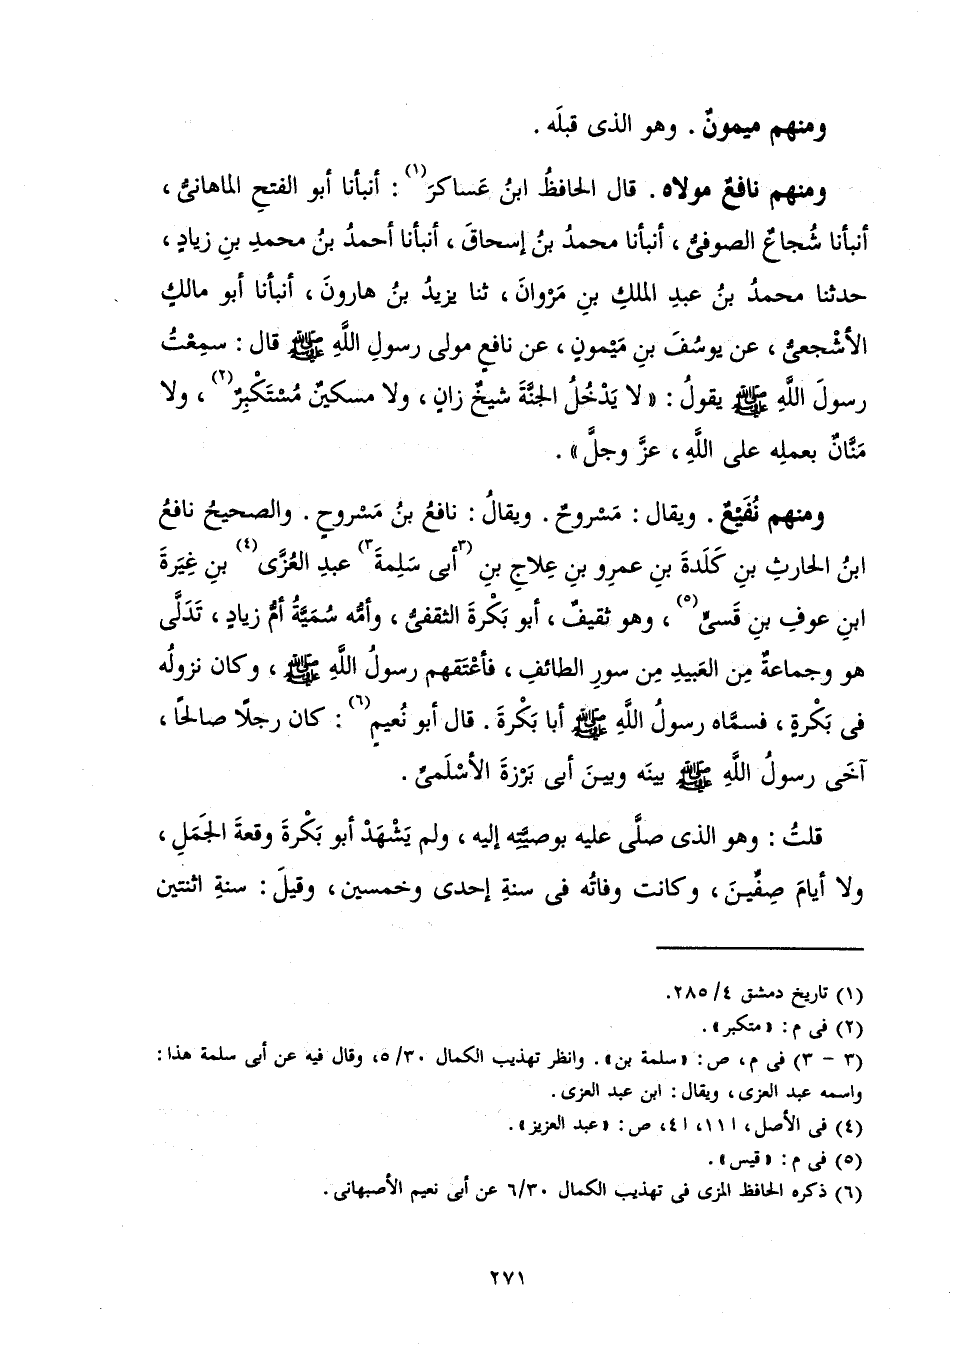 ومنهم ميمونٌ . وهو الذى قبلَه .
ومنهم نافعٌ مولاه . قال الحافظُ ابنُ عَساكرَ(١) : أنبأنا أبو الفتحِ الماهانىُّ ،
أنبأنا شُجاعٌ الصوفىُّ ، أنبأنا محمدُ بنُ إسحاقَ ، أنبأنا أحمدُ بنُ محمدِ بنِ زيادٍ ،
حدثنا محمدُ بنُ عبدِ الملكِ بنِ مَرْوانَ ، ثنا يزيدُ بنُ هارونَ ، أنبأنا أبو مالكٍ
الأشْجعىُّ ، عن يوسُفَ بنِ مَيْمونٍ ، عن نافعٍ مولى رسولِ اللَّهِ ﷺ قال : سمِعْتُ
رسولَ اللَّهِ ﷺ يقولُ : « لا يَدْخُلُ الجنَّةَ شيخٌ زانٍ ، ولا مسكينٌ مُسْتَكْبِرٌ(٢) ، ولا
مَنَّانٌ بعملِه على اللَّهِ ، عزَّ وجلَّ » .
ومنهم نُفَيْعٌ . ويقال : مَسْروحٌ . ويقالُ : نافعُ بنُ مَسْروحٍ . والصحيحُ نافعُ
ابنُ الحارثِ بنِ كَلَدةَ بنِ عمرِو بنِ عِلاجِ بنِ (٣أبى سَلِمةَ٣) عبدِ العُزَّى(٤) بنِ غِيَرةَ
ابنِ عوفِ بنِ قَسىٍّ(٥) ، وهو ثقيفٌ ، أبو بَكْرةَ الثقفىُّ ، وأمُّه سُمَيَّةُ أمُّ زيادٍ ، تَدَلَّى
هو وجماعةٌ مِن العَبيدِ مِن سورِ الطائفِ ، فأعْتَقهم رسولُ اللَّهِ ﷺ ، وكان نزولُه
فى بَكْرةٍ ، فسمَّاه رسولُ اللَّهِ ﷺ أبا بَكْرةَ . قال أبو نُعيمٍ(٦) : كان رجلًا صالحًا ،
آخَى رسولُ اللَّهِ ﷺ بينَه وبينَ أبى بَرْزةَ الأسْلَمىِّ .
قلتُ : وهو الذى صلَّى عليه بوصيَّتِه إليه ، ولم يَشْهَدْ أبو بَكْرةَ وقعةَ الجَمَلِ ،
ولا أيامَ صِفِّينَ ، وكانت وفاتُه فى سنةِ إحدى وخمسين ، وقيلَ : سنةِ اثنتين
(١) تاريخ دمشق ٤/ ٢٨٥.
(٢) فى م : « متكبر » .
(٣ - ٣) فى م، ص : « سلمة بن » . وانظر تهذيب الكمال ٣٠/ ٥، وقال فيه عن أبى سلمة هذا :
واسمه عبد العزى ، ويقال : ابن عبد العزى .
(٤) فى الأصل، ١١١، ٤١، ص : « عبد العزيز » .
(٥) فى م : « قيس » .
(٦) ذكره الحافظ المزى فى تهذيب الكمال ٦/٣٠ عن أبى نعيم الأصبهانى .
٢٧١